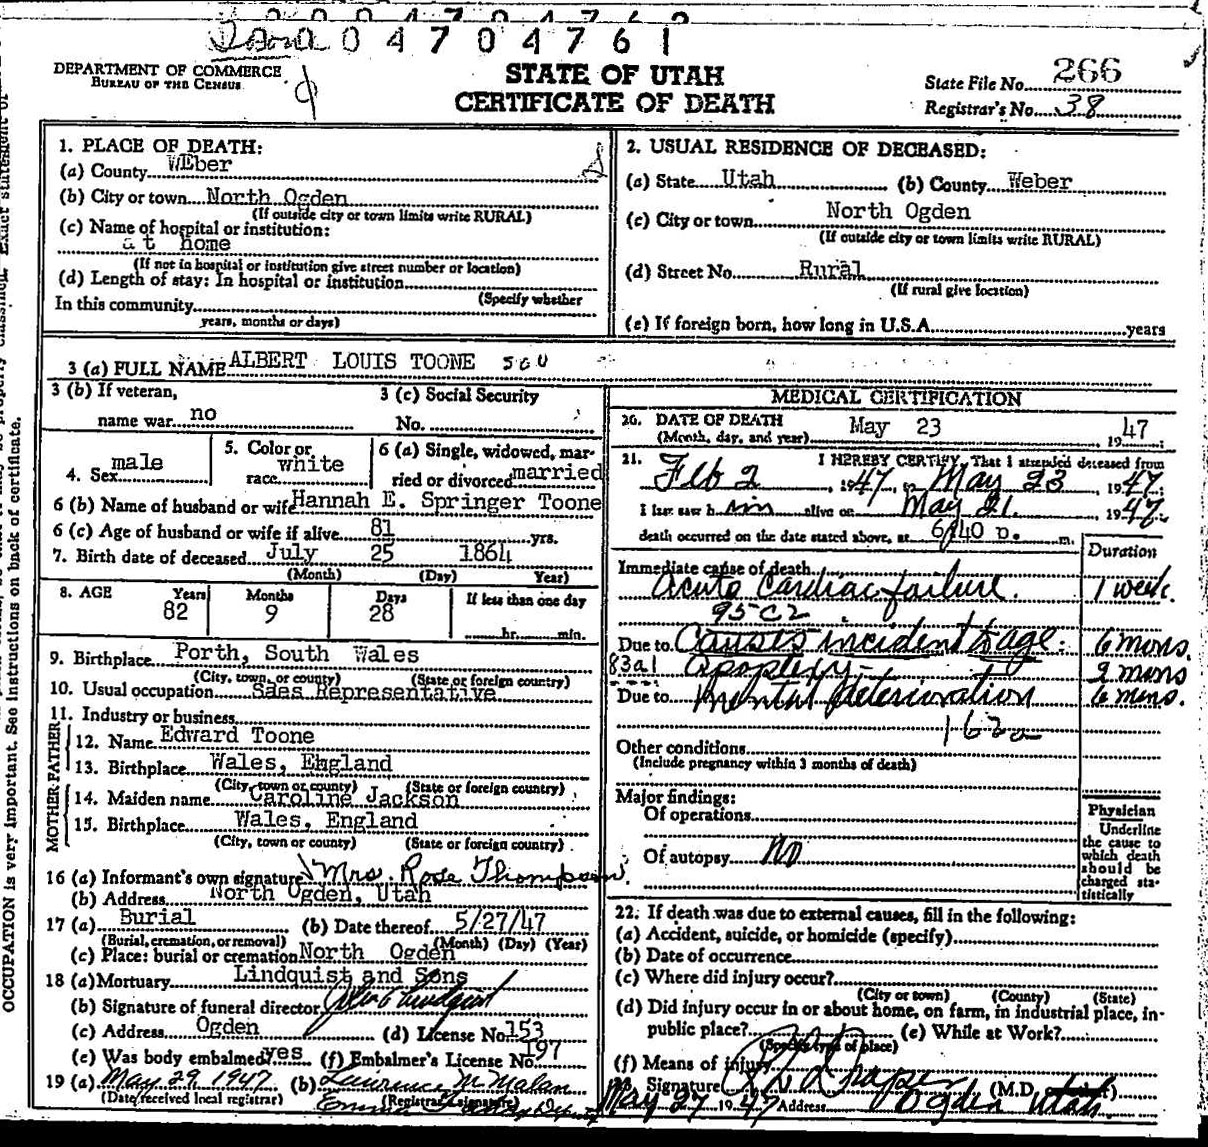 004704761
DEPARTMENT OF COMMERCE
BUREAU OF THE CENSUS
STATE OF UTAH
CERTIFICATE OF DEATH
State File No. 266
Registrar's No. 38
1. PLACE OF DEATH:
(a) County WEber
(b) City or town North Ogden
(If outside city or town limits write RURAL)
(c) Name of hospital or institution:
at home
(If not in hospital or institution give street number or location)
(d) Length of stay: In hospital or institution
(Specify whether
In this community
years, months or days)
2. USUAL RESIDENCE OF DECEASED:
(a) State Utah (b) County Weber
(c) City or town North Ogden
(If outside city or town limits write RURAL)
(d) Street No. Rural
(If rural give location)
(e) If foreign born, how long in U.S.A. years
3 (a) FULL NAME ALBERT LOUIS TOONE
3 (b) If veteran,
name war no
3 (c) Social Security
No.
4. Sex male
5. Color or
race white
6 (a) Single, widowed, mar-
ried or divorced married
6 (b) Name of husband or wife Hannah E. Springer Toone
6 (c) Age of husband or wife if alive 81 yrs.
7. Birth date of deceased July 25 1864
(Month) (Day) Year)
8. AGE Years Months Days If less than one day
82 9 28 hr. min.
9. Birthplace Porth, South Wales
(City, town, or county) (State or foreign country)
10. Usual occupation Saes Representative
11. Industry or business
FATHER
12. Name Edward Toone
13. Birthplace Wales, England
(City, town or county) (State or foreign country)
MOTHER
14. Maiden name Caroline Jackson
15. Birthplace Wales, England
(City, town or county) (State or foreign country)
16 (a) Informant's own signature Mrs. Rose Thompson
(b) Address North Ogden, Utah
17 (a) Burial (b) Date thereof 5/27/47
(Burial, cremation, or removal) (Month) (Day) (Year)
(c) Place: burial or cremation North Ogden
18 (a) Mortuary Lindquist and Sons
(b) Signature of funeral director
(c) Address Ogden (d) License No. 153
(e) Was body embalmed? yes (f) Embalmer's License No. 197
19 (a) May 29 1947 (b) Lawrence M Malan
(Date received local registrar) (Registrar's signature)
MEDICAL CERTIFICATION
20. DATE OF DEATH
(Month, day, and year) May 23 1947
21. I HEREBY CERTIFY, That I attended deceased from
Feb 2, 1947, to May 23, 1947;
I last saw him alive on May 21. 1947.
death occurred on the date stated above, at 6:40 p. m.
Duration
Immediate cause of death
Acute Cardiac failure. 1 week.
95C2
Due to Causes incident to age. 6 mons.
83a1 Apoplexy 2 mons
Due to mental deterioration 6 mns.
162a
Other conditions
(Include pregnancy within 3 months of death)
Major findings:
Of operations
Of autopsy No
Physician
Underline
the cause to
which death
should be
charged sta-
tistically
22. If death was due to external causes, fill in the following:
(a) Accident, suicide, or homicide (specify)
(b) Date of occurrence
(c) Where did injury occur?
(City or town) (County) (State)
(d) Did injury occur in or about home, on farm, in industrial place, in-
public place? (e) While at Work?
(Specify type of place)
(f) Means of injury
Signature (M.D.
May 27 1947 Address Ogden Utah.
OCCUPATION is very important. See instructions on back of certificate.